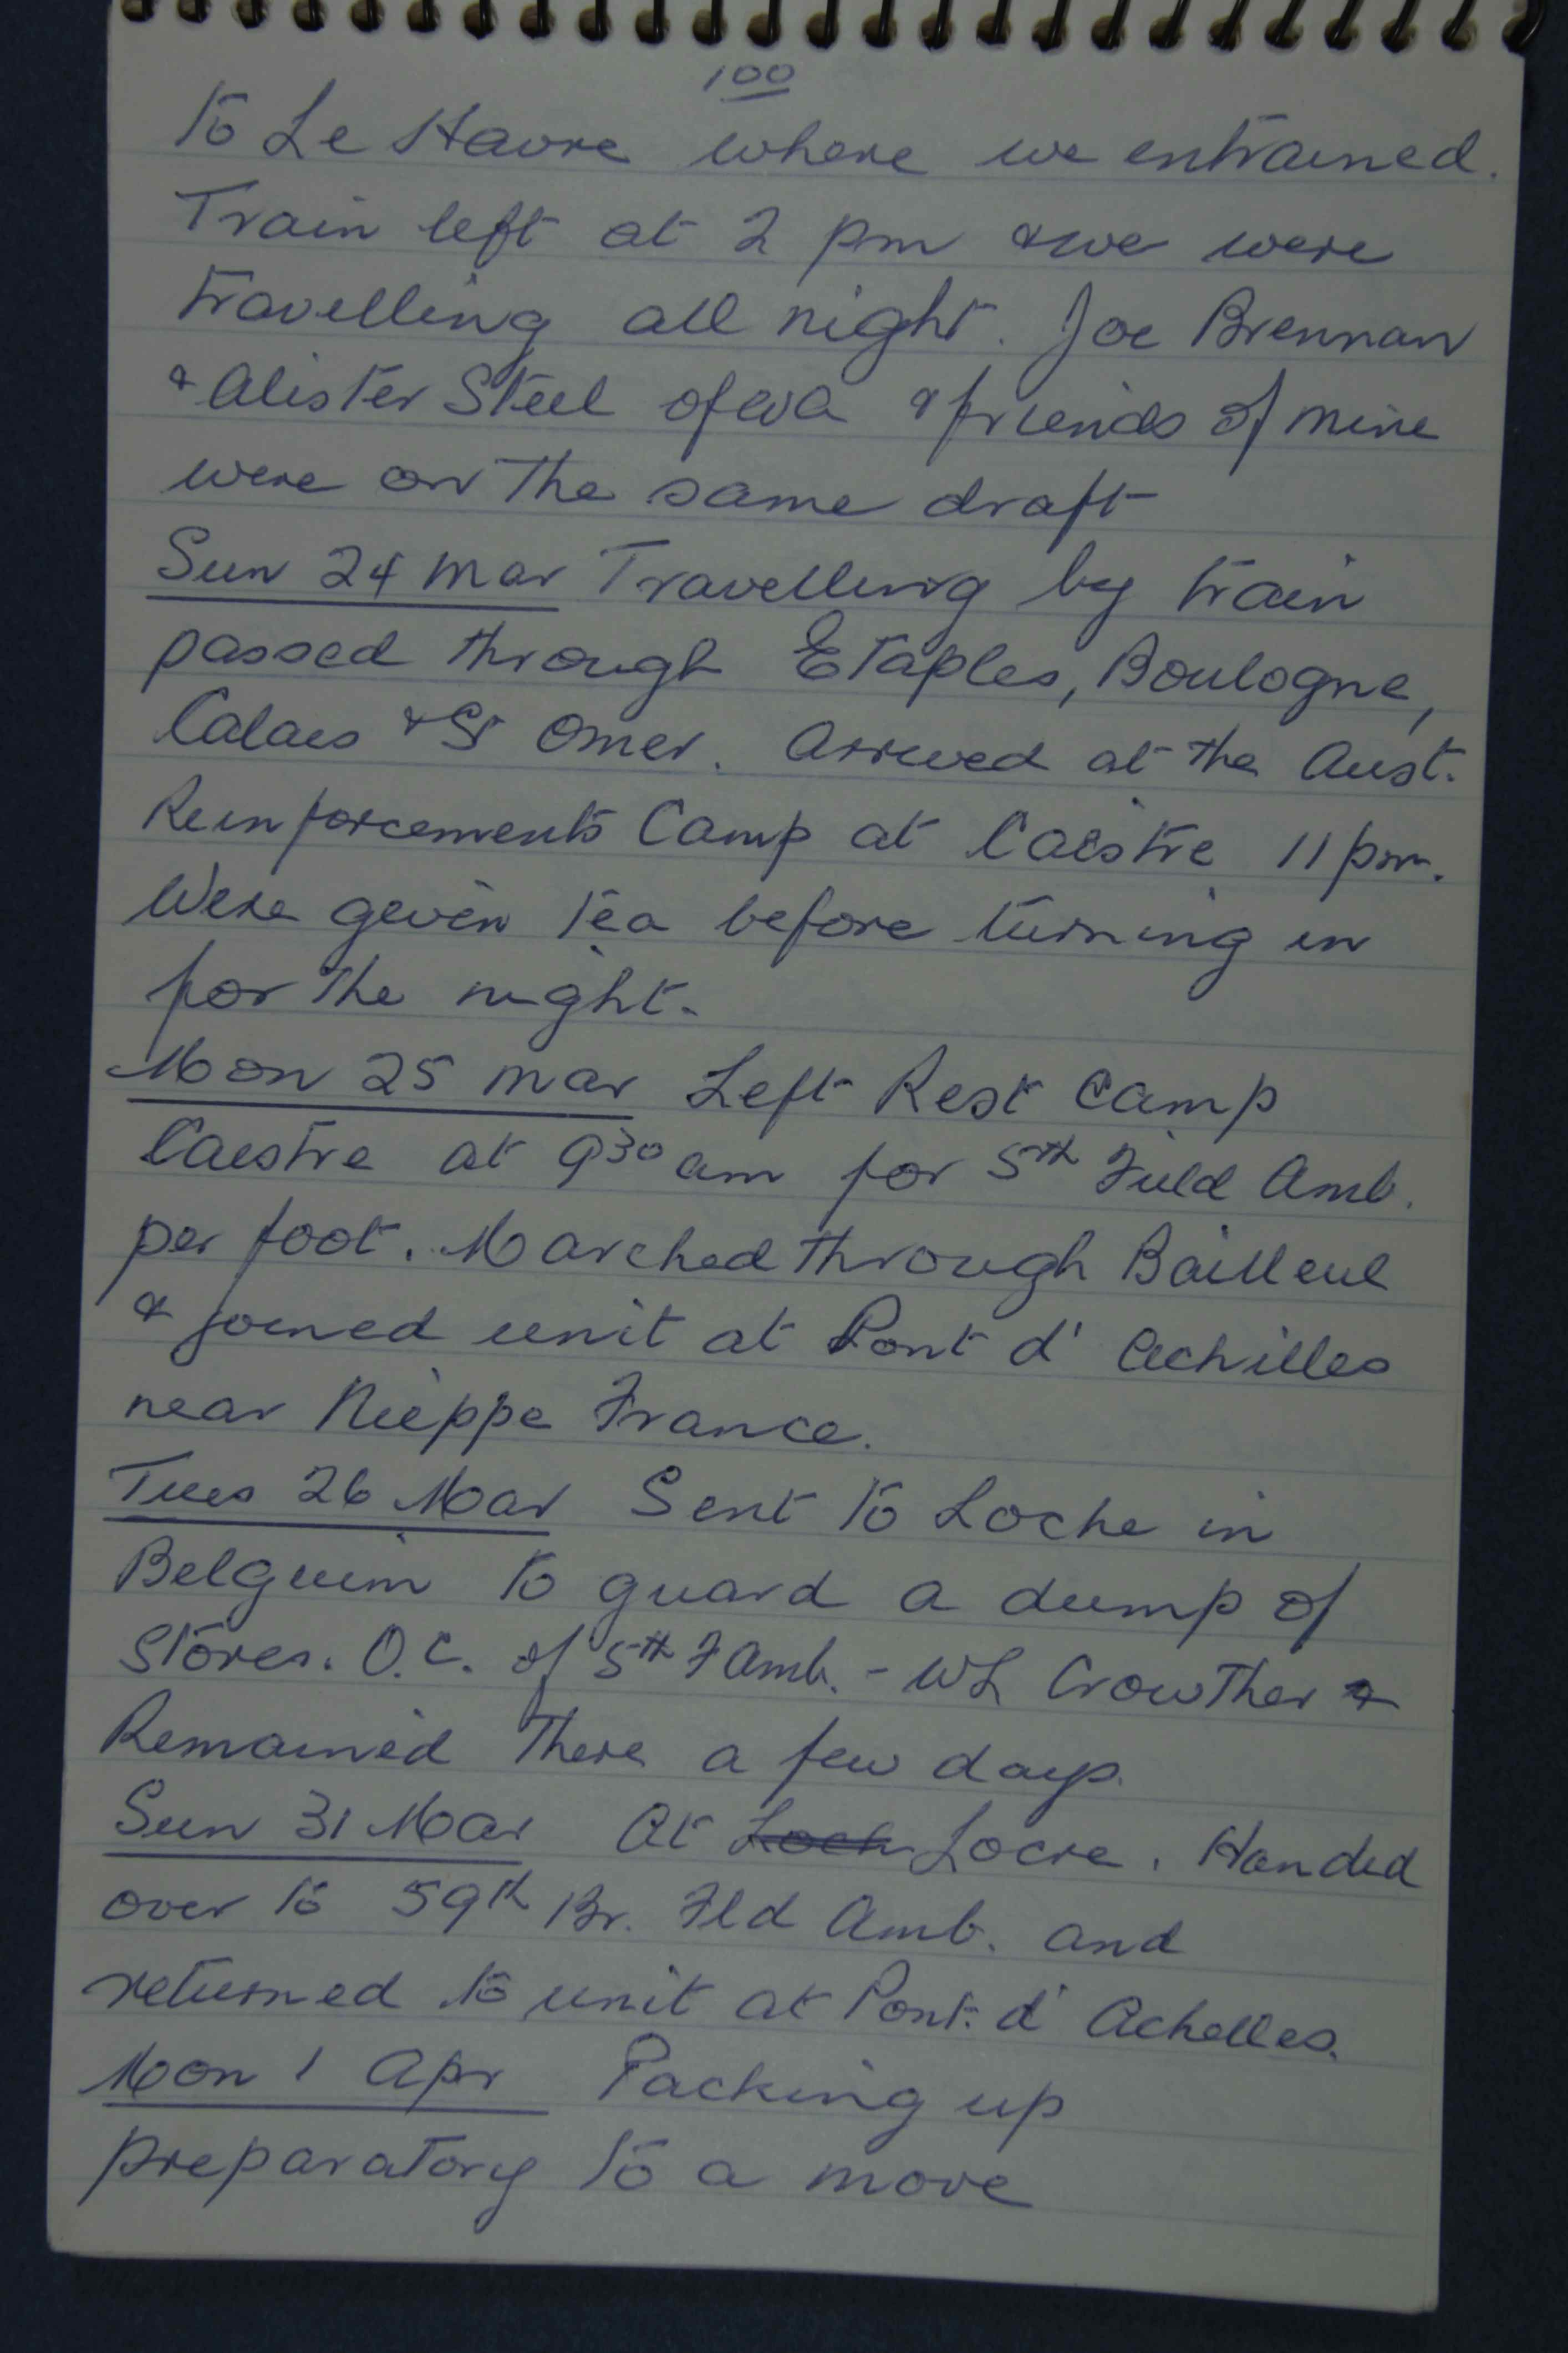 100
to Le Havre where we entrained.
Train left at 2 pm & we were
travelling all night. Joe Brennan
& Alister Steel of WA & friends of mine
were on the same draft
Sun 24 Mar Travelling by train
passed through Etaples, Boulogne,
Calais & St Omer. Arrived at the Aust.
Reinforcements Camp at Caestre 11 pm.
Were given tea before turning in
for the night.
Mon 25 Mar Left Rest Camp
Caestre at 9 30 am for 5th Field Amb.
per foot. Marched through Bailleul
& joined unit at Pont d' Achilles
near Nieppe France.
Tues 26 Mar Sent to Loche in
Belguim to guard a dump of
Stores. O.C. of 5th F Amb. - WL Crowther &
Remained there a few days.
Sun 31 Mar At Loch Locre. Handed
over to 59th Br. Fld Amb. and
returned to unit at Pont. d' Achelles.
Mon 1 Apr Packing up
preparatory to a move